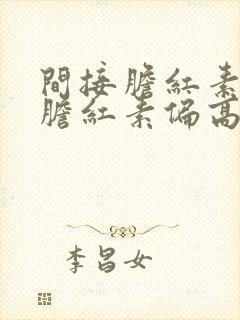 間接膽紅素
膽紅素偏高
李昌女